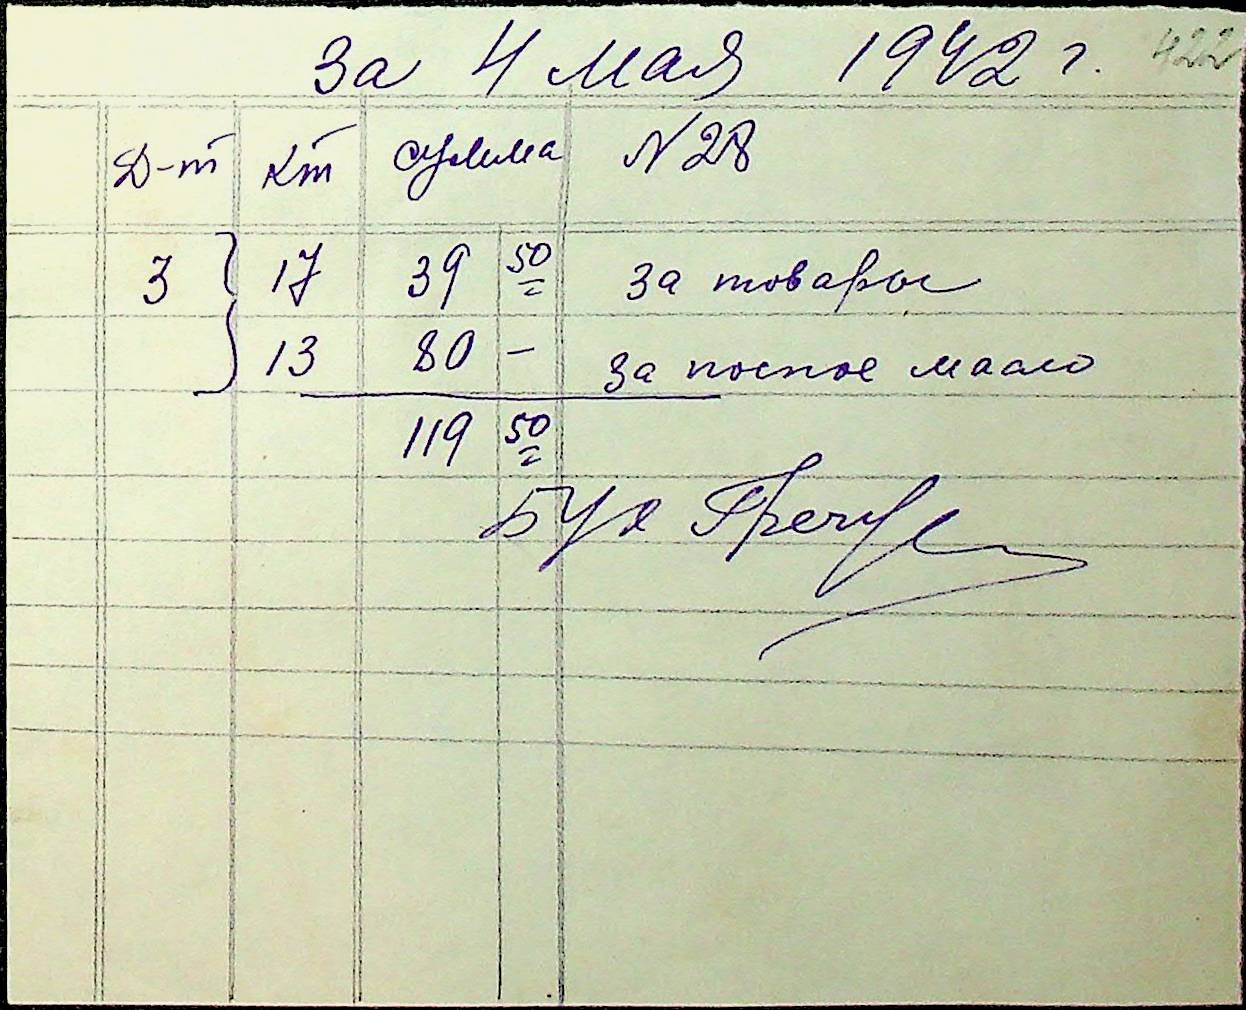 За 4 мая 1942 г. 422
Д-т Кт сумма № 28
3 } 17 39 50 за товары
13 80 - за посное масло
119 50
Бух